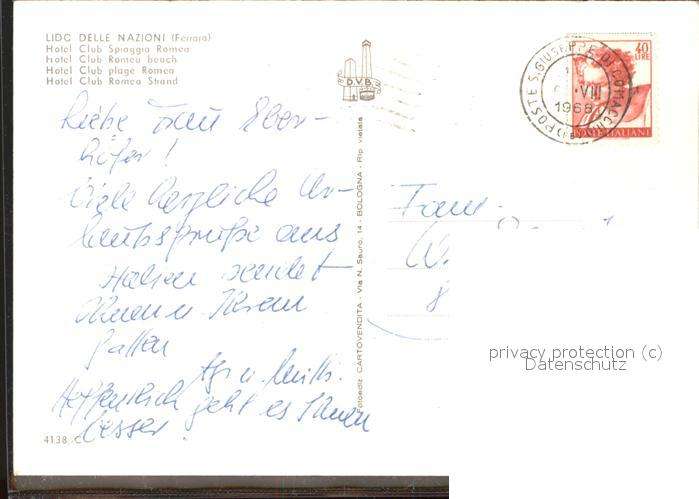 LIDO DELLE NAZIONI (Ferrara)
Hotel Club Spiaggia Romea
Hotel Club Romea beach
Hotel Club plage Romea
Hotel Club Romea Strand
D.V.B.
40
LIRE
POSTE S.GIUSEPPE DI COMACCHIO
VIII
1968
POSTE ITALIANE
Liebe Frau Eber-
höfer!
Viele herzliche Ur-
laubsgrüße aus
Italien sendet
Ihnen u. Ihrem
Gatten
Hoffentlich geht es Ihnen
besser.
Fam.
Fotoediz. CARTOVENDITA - Via N. Sauro, 14 - BOLOGNA - Rip. vietata
4138 C
privacy protection (c)
Datenschutz